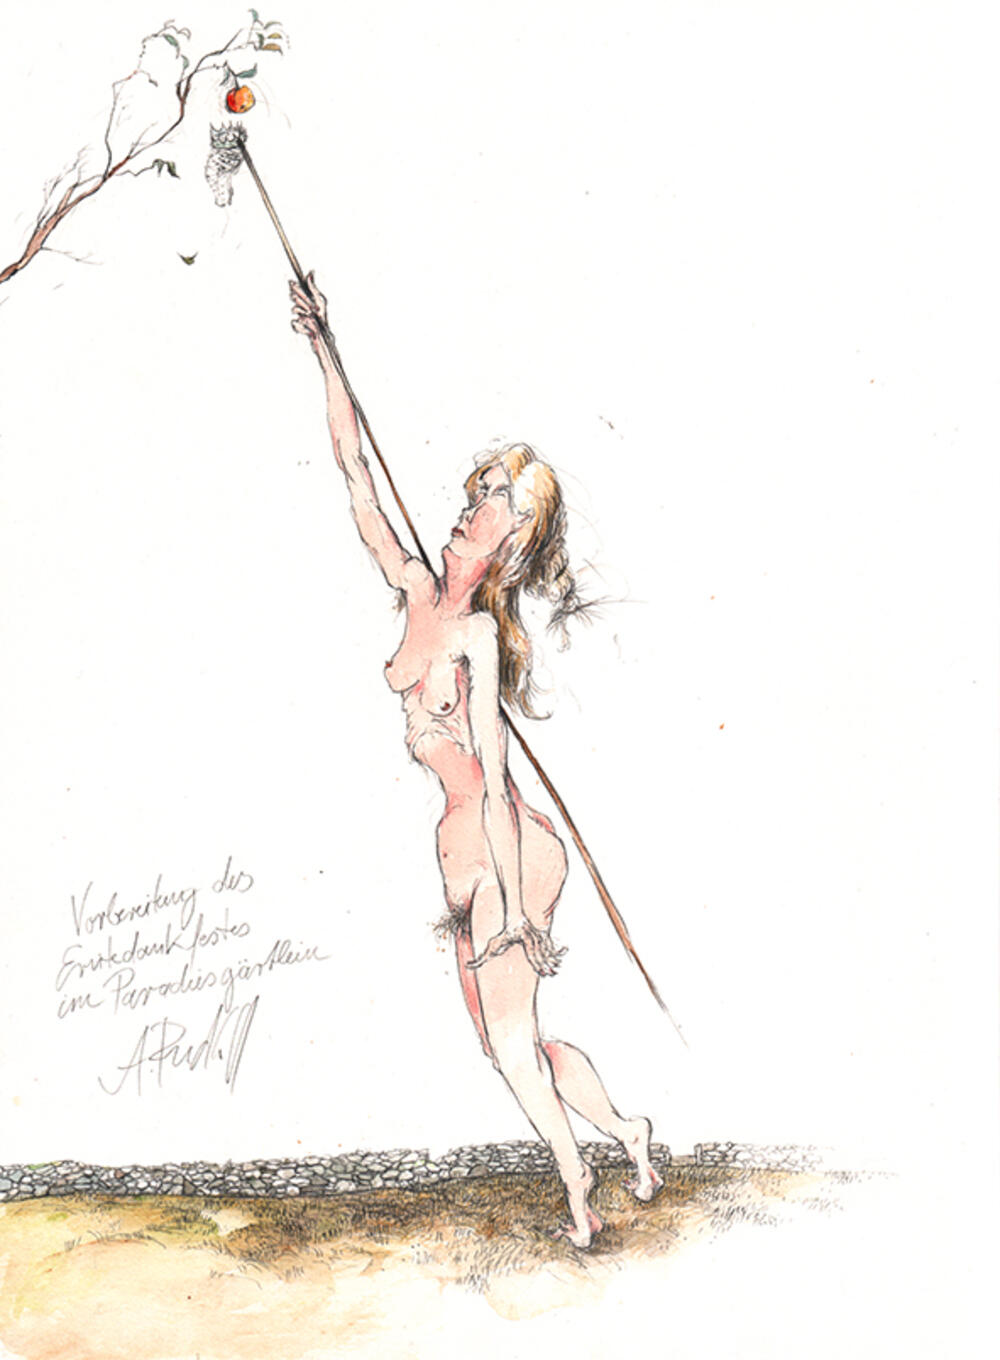 Vorbereitung des
Erntedankfestes
im Paradiesgärtlein